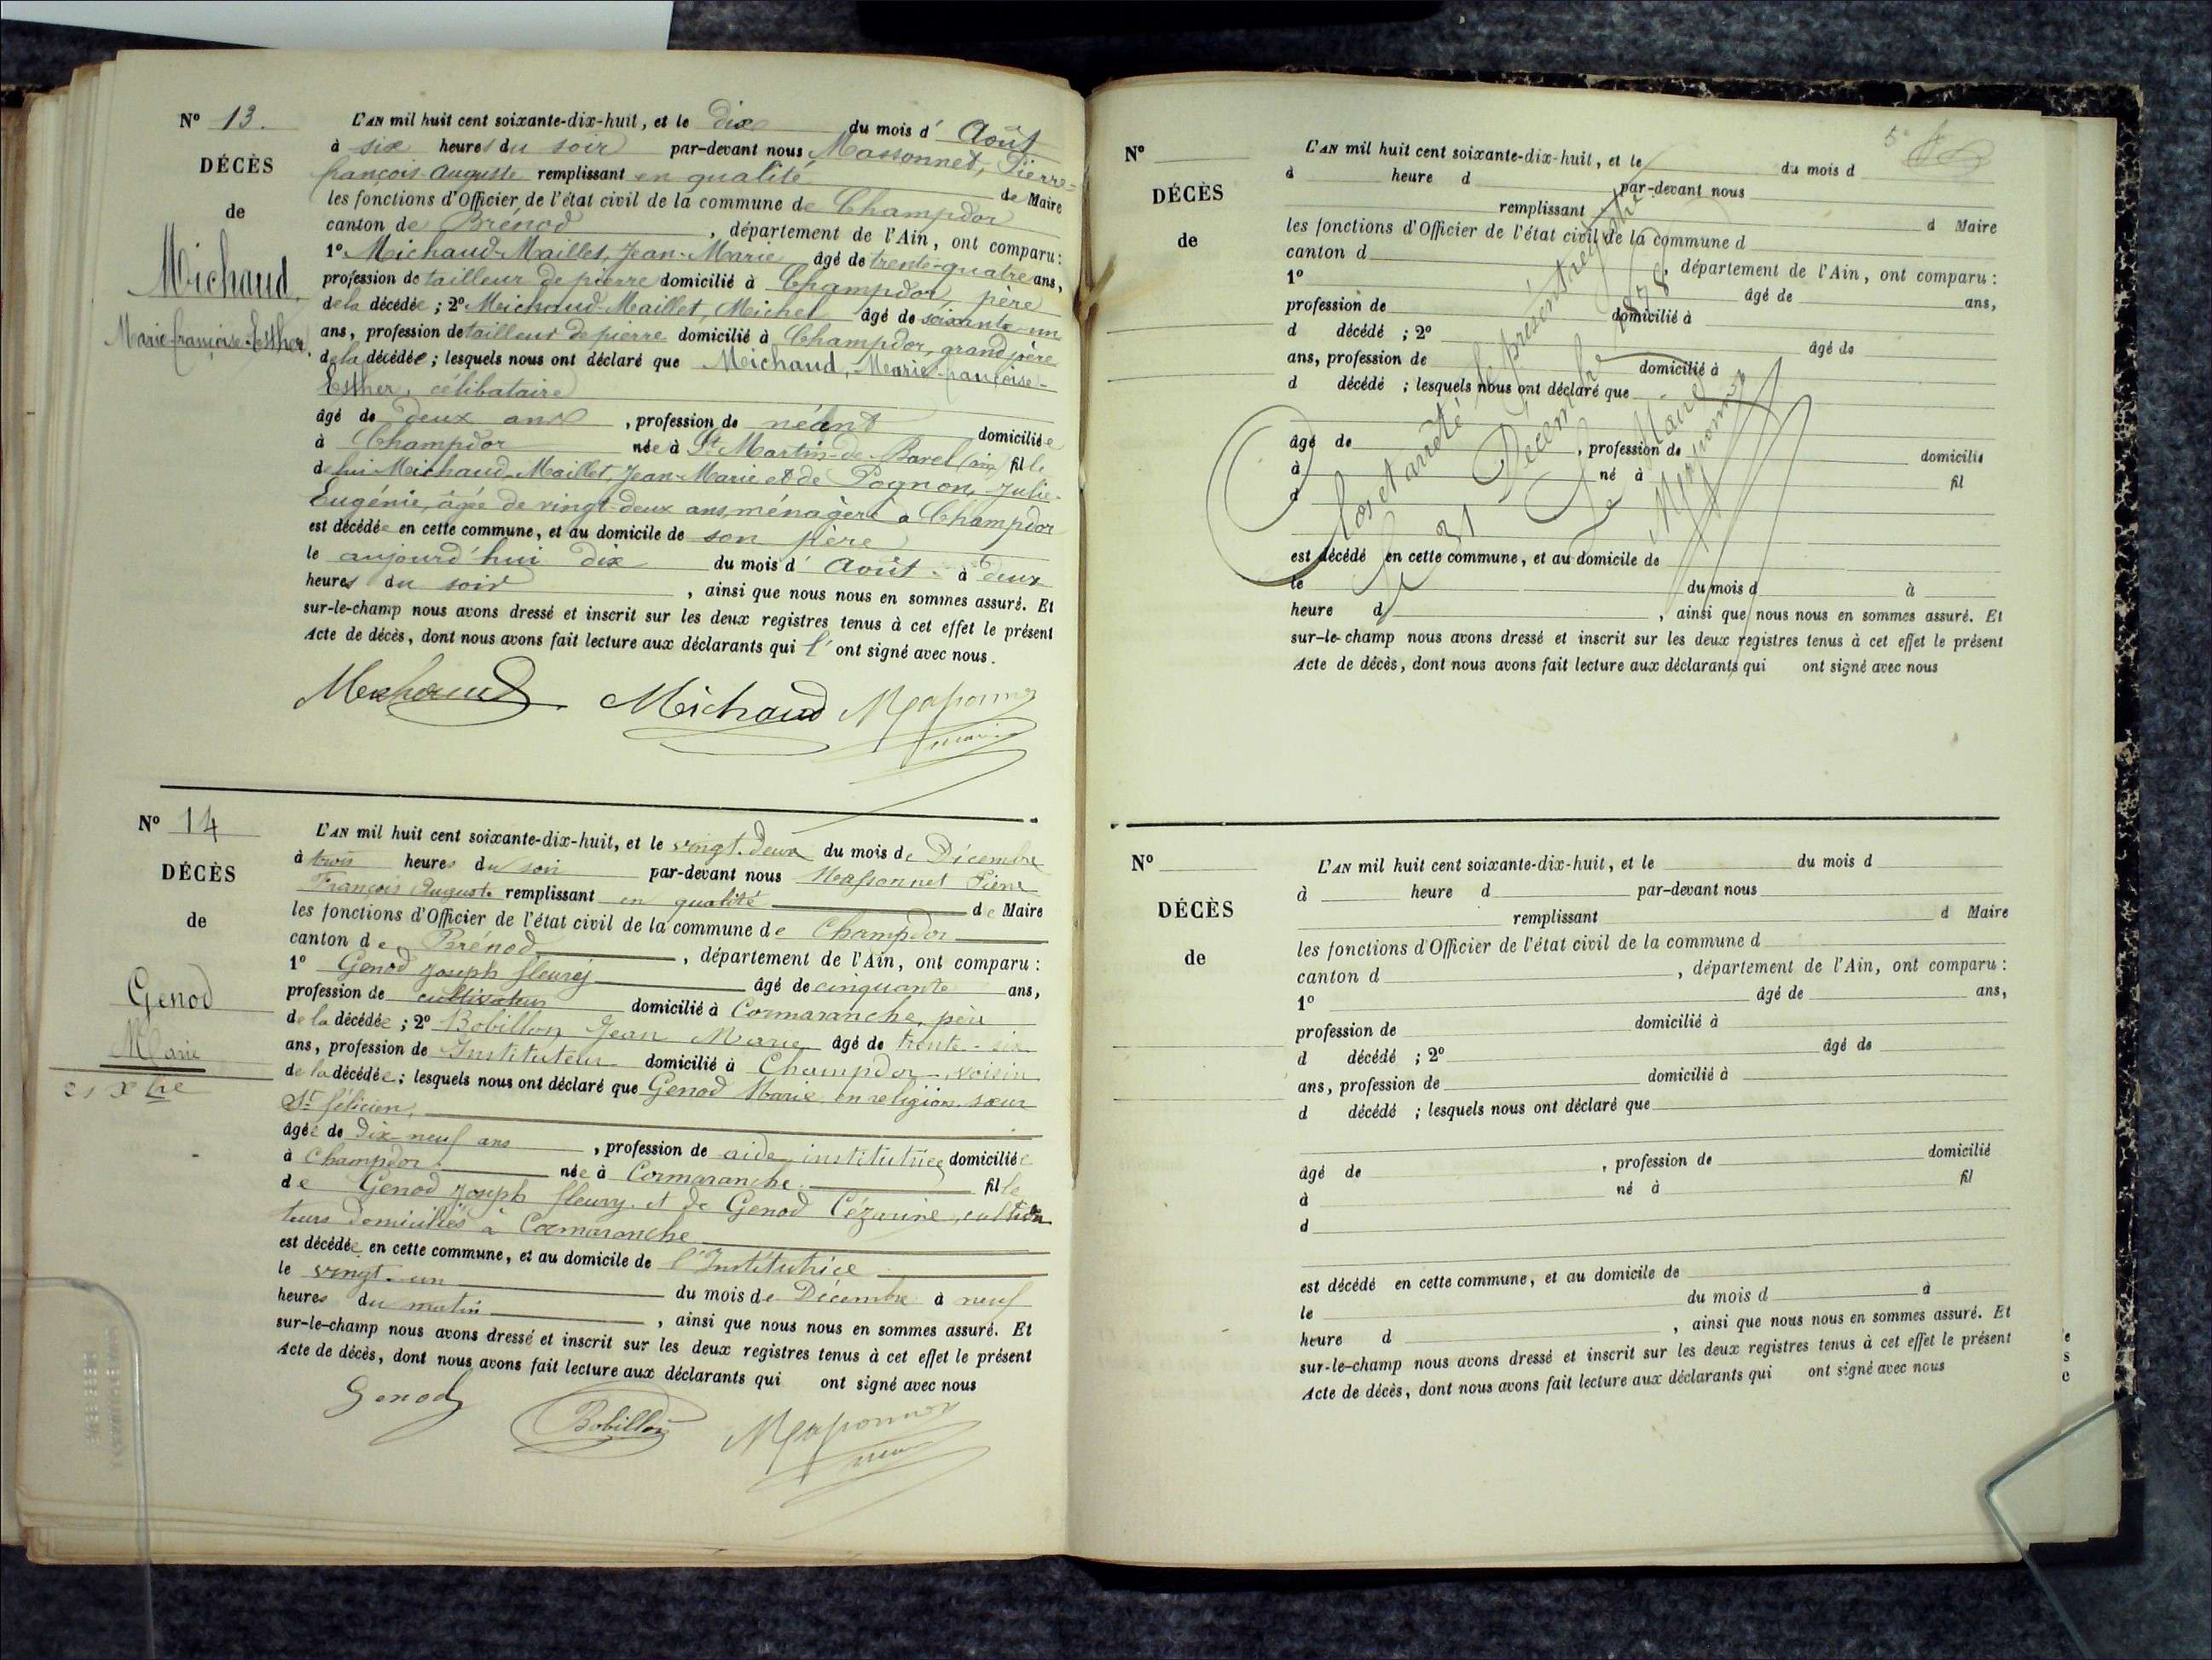 N° 13.
DÉCÈS
de
Michaud,
Marie-françoise-Esther.
L'AN mil huit cent soixante-dix-huit, et le dix du mois d'Août
à six heures du soir par-devant nous Massonnet, Pierre-
françois Auguste remplissant en qualité de Maire
les fonctions d'Officier de l'état civil de la commune de Champdor
canton de Brénod, département de l'Ain, ont comparu :
1° Michaud-Maillet, Jean-Marie âgé de trente-quatre ans,
profession de tailleur de pierre domicilié à Champdor, père
de la décédée ; 2° Michaud-Maillet, Michel âgé de soixante-un
ans, profession de tailleur de pierre domicilié à Champdor, grand père
de la décédée ; lesquels nous ont déclaré que Michaud, Marie-françoise-
Esther, célibataire
âgé de deux ans, profession de néant domiciliée
à Champdor née à St Martin-de-Bavel (ain) fille
de lui Michaud-Maillet, Jean-Marie et de Pognon, Julie-
Eugénie, âgée de vingt-deux ans, ménagère à Champdor
est décédée en cette commune, et au domicile de son père
le aujourd'hui dix du mois d'Août à deux
heures du soir, ainsi que nous nous en sommes assuré. Et
sur-le-champ nous avons dressé et inscrit sur les deux registres tenus à cet effet le présent
Acte de décès, dont nous avons fait lecture aux déclarants qui l'ont signé avec nous.
Michaud Michaud Massonnet
maire
N° 14
DÉCÈS
de
Genod
Marie
21 Xbre
L'AN mil huit cent soixante-dix-huit, et le vingt-deux du mois de Décembre
à trois heures du soir par-devant nous Massonnet Pierre
François Auguste remplissant en qualité de Maire
les fonctions d'Officier de l'état civil de la commune de Champdor
canton de Brénod, département de l'Ain, ont comparu :
1° Genod Joseph fleury âgé de cinquante ans,
profession de cultivateur domicilié à Cormaranche, père
de la décédée ; 2° Bobillon Jean Marie âgé de trente-six
ans, profession de Instituteur domicilié à Champdor voisin
de la décédée ; lesquels nous ont déclaré que Genod Marie en religion sœur
St félicien,
âgée de dix-neuf ans, profession de aide institutrice domiciliée
à Champdor née à Cormaranche fille
de Genod Joseph fleury et de Genod Cézarine, cultiva
teurs domiciliés à Cormaranche
est décédée en cette commune, et au domicile de l'Institutrice
le vingt-un du mois de Décembre à neuf
heures du matin, ainsi que nous nous en sommes assuré. Et
sur-le-champ nous avons dressé et inscrit sur les deux registres tenus à cet effet le présent
Acte de décès, dont nous avons fait lecture aux déclarants qui ont signé avec nous
Genod Bobillon Massonnet
maire
5e
N°
DÉCÈS
de
L'AN mil huit cent soixante-dix-huit, et le du mois d
à heure d par-devant nous
remplissant d Maire
les fonctions d'Officier de l'état civil de la commune d
canton d, département de l'Ain, ont comparu :
1° âgé de ans,
profession de domicilié à
d décédé ; 2° âgé de
ans, profession de domicilié à
d décédé ; lesquels nous ont déclaré que
âgé de, profession de domicilié
à né à fil
d
est décédé en cette commune, et au domicile de
le du mois d à
heure d, ainsi que nous nous en sommes assuré. Et
sur-le-champ nous avons dressé et inscrit sur les deux registres tenus à cet effet le présent
Acte de décès, dont nous avons fait lecture aux déclarants qui ont signé avec nous
Clos et arrêté le présent registre
le 31 Décembre 1878
Le Maire
Massonnet
N°
DÉCÈS
de
L'AN mil huit cent soixante-dix-huit, et le du mois d
à heure d par-devant nous
remplissant d Maire
les fonctions d'Officier de l'état civil de la commune d
canton d, département de l'Ain, ont comparu :
1° âgé de ans,
profession de domicilié à
d décédé ; 2° âgé de
ans, profession de domicilié à
d décédé ; lesquels nous ont déclaré que
âgé de, profession de domicilié
à né à fil
d
est décédé en cette commune, et au domicile de
le du mois d à
heure d, ainsi que nous nous en sommes assuré. Et
sur-le-champ nous avons dressé et inscrit sur les deux registres tenus à cet effet le présent
Acte de décès, dont nous avons fait lecture aux déclarants qui ont signé avec nous